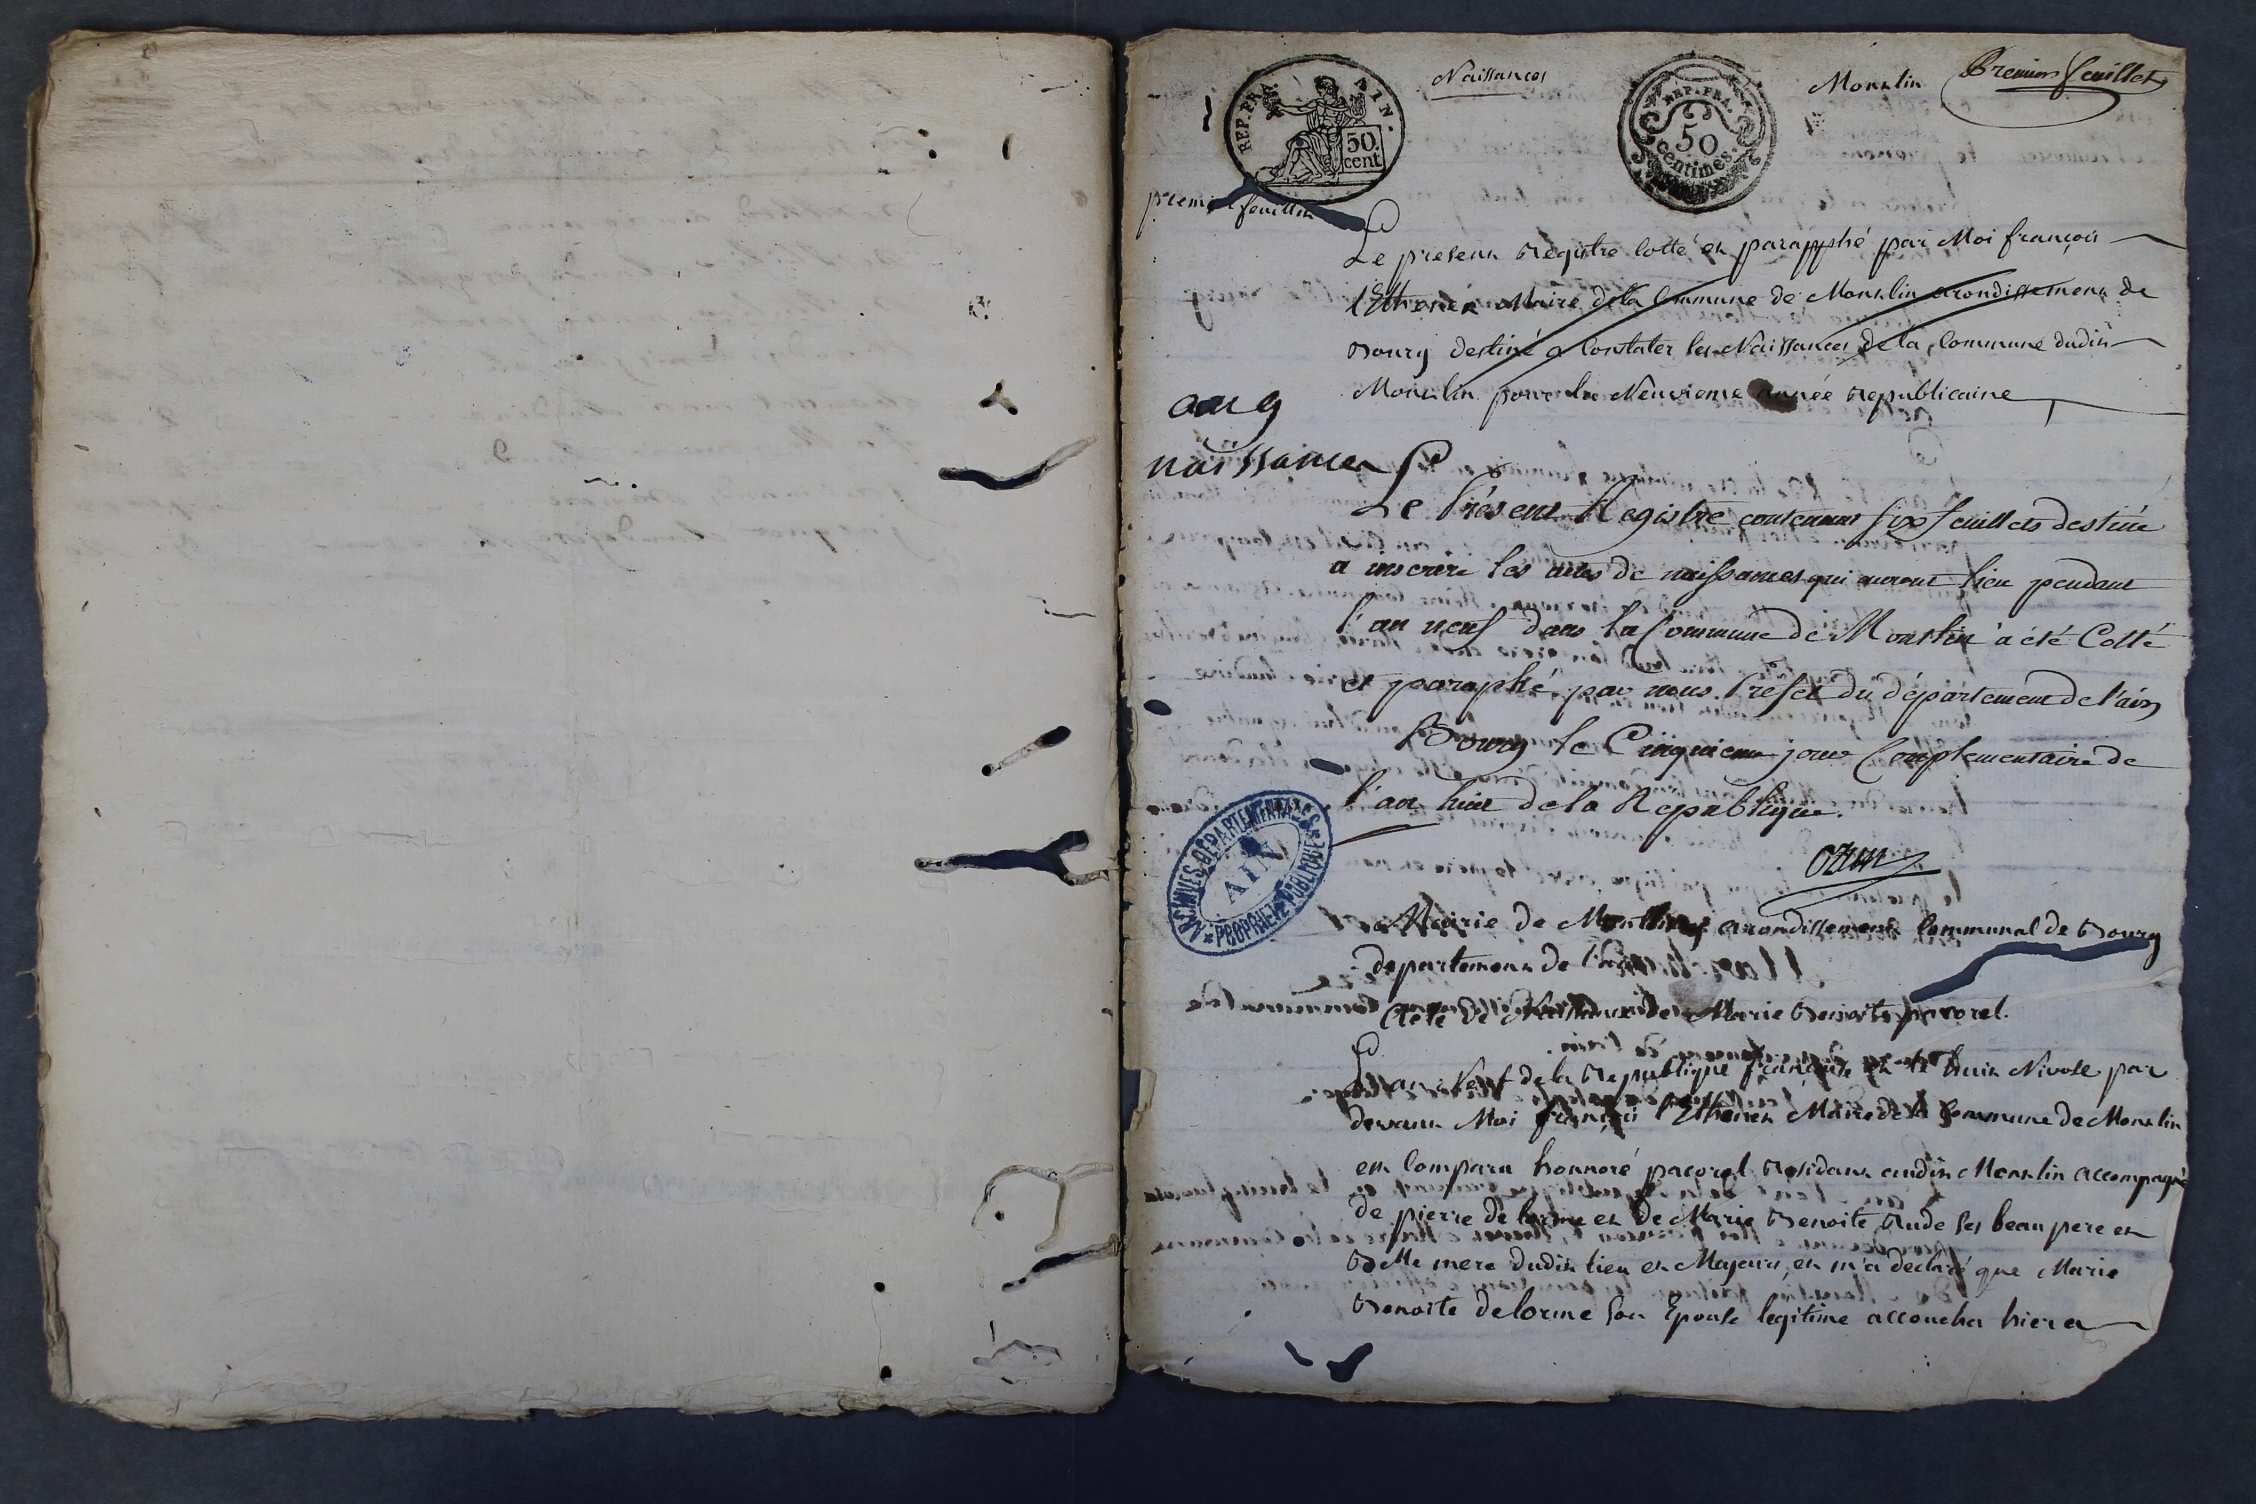 Naissances
Monslin
Premier feuillet
REP. FRA. AIN.
50 cent
REP. FRA.
50
centimes
premier feuillet
Le present Registre cotté et parapphé par Moi françois
l'Ethenet Maire dela Commune de Monslin arondissement de
Bourg destiné a Constater les Naissances dela Commune dudit
Monslin pour la Neuvieme année Republicaine
an 9
naissances
Le Présent Registre contenant six feuillets destiné
a inscrire les actes de naissances qui auront lieu pendant
l'an neuf dans la Commune de Monslin a été Cotté
et paraphé par nous Prefet du département de l'ain
Bourg le Cinquieme jour Complementaire de
l'an huit de la Republique.
ozun
ARCHIVES DÉPARTEMENTALES
AIN
PROPRIÉTÉ PUBLIQUE
Mairie de Monslin arondissement Communal de Bourg
departement de l'ain
Acte de Naissance de Marie Benoite pacorel.
L'an Neuf de la Republique française et le huit Nivose par
devant Moi françois l'Ethenet Maire de la Commune de Monslin
est Comparu honnoré pacorel Residant audit Monslin accompagné
de pierre de lorme et de Marie Benoite Rude ses beau pere et
Belle mere dudit lieu et Majeurs, et m'a declaré que Marie
Benoite delorme son Epouse legitime accoucha hier a